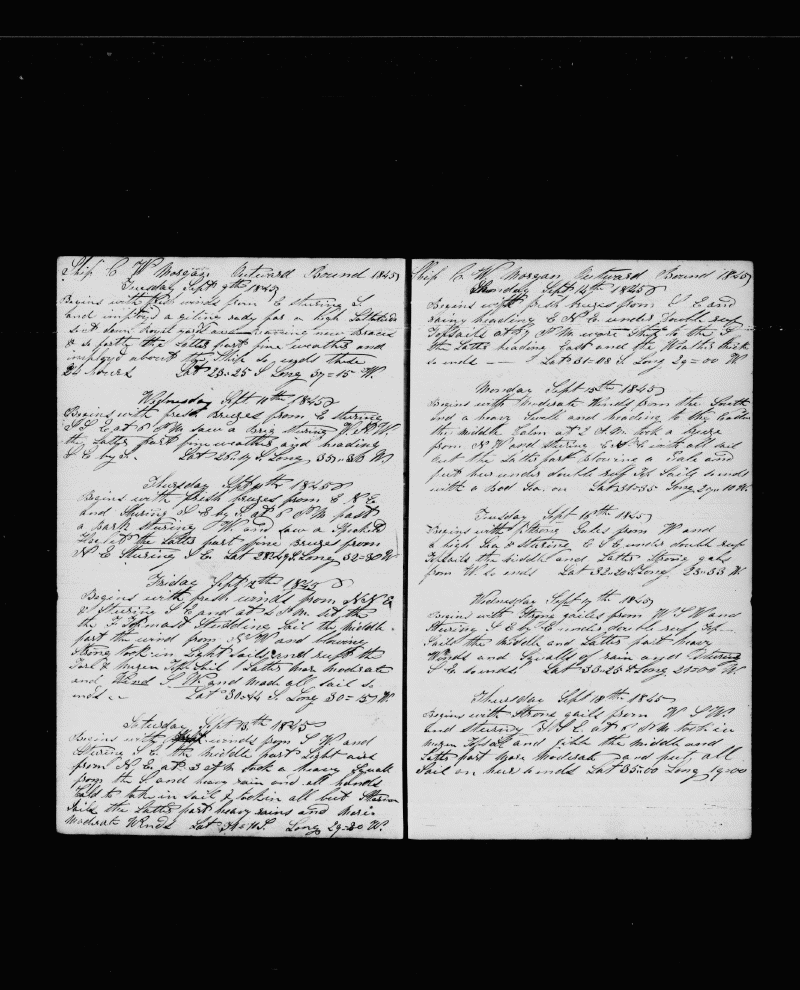 Ship C W Morgan Outward Bound 1845
Tuesday Sept 9th 1845
Begins with winds from E stearing S
and imployd a giting rady for a high Lattitude
sent down Royal yards and reaving new Braces
& so forth the Latter part fine weather and
imployd about the Ship so ends these
24 hours Lat 23=25 S Long 37=15 W.
Wednesday Sept 10th 1845
Begins with fresh Breezes from E stearing
S S E at 5 P M saw a Brig stearing W N W.
the Latter part fine weather and heading
S E by S. Lat 25=17 S Long 35=36 W
Thursday Sept 11th 1845
Begins with fresh breezes from E N E
and Stearing S E by S at 6 P M past
a bark stearing W and saw a
the Latter part fine breezes from
N E Stearing S E Lat 28=49 S Long 32=30 W
Friday Sept 12th 1845
Begins with fresh winds from N N E
& Stearing S E and at 4 P M set the
the F Topmast Studding Sail the middle
part the wind from N W and blowing
Strong took in Light Sails and reeft the
Fore & Mizen Top Sail Latter more moderate
and Wind S W and made all sail so
ends Lat 30=44 S Long 30=15 W.
Saturday Sept 13th 1845
Begins with winds from S W and
Stearing S E the middle part Light airs
from N E at 3 A M took a heavy Squall
from the S and heavy rain and all hands
Calld to take in sail & took in all but
Sails the Latter part heavy rains and more
moderate Winds Lat S. Long 29=20 W.
Ship C W Morgan Outward Bound 1845
Sunday Sept 14th 1845
Begins with fresh breezes from S E and
rainy heading E N E under double reef
TopSails at 7 P M wore Ship to the
the Latter heading East and the Weather thick
so ends Lat 31=08 S Long 29=00 W
Monday Sept 15th 1845
Begins with Moderate Winds from the South
and a heavy Swell and heading to the Eastern
the middle Calm at 2 A M took a breeze
from N W and stearing E S E with all sail
but the Latter part blowing a Gale and
put her under double reef Top Sails so ends
with a bad Sea on Lat 31=35 Long 27=10 W.
Tuesday Sept 16th 1845
Begins with Strong Gales from W and
a high Sea & Stearing E S E under double reep
TopSails the middle and Latter Strong gales
from W So ends Lat 32=20 S Long 23=33 W.
Wednesday Sept 17th 1845
Begins with Strong gailes from W S W and
Stearing S E by E under double reeft Top
Sails the middle and Latter part heavy
Winds and Squalls of rain and Stearing
S E so ends. Lat 33=25 S Long 20=00 W.
Thursday Sept 18th 1845
Begins with Strong gails from W S W.
and stearing at 8 P M took in
Mizen TopSail and Jibb the middle and
Latter part More Moderate and put all
Sail on her so ends Lat 35=00 Long 19=00